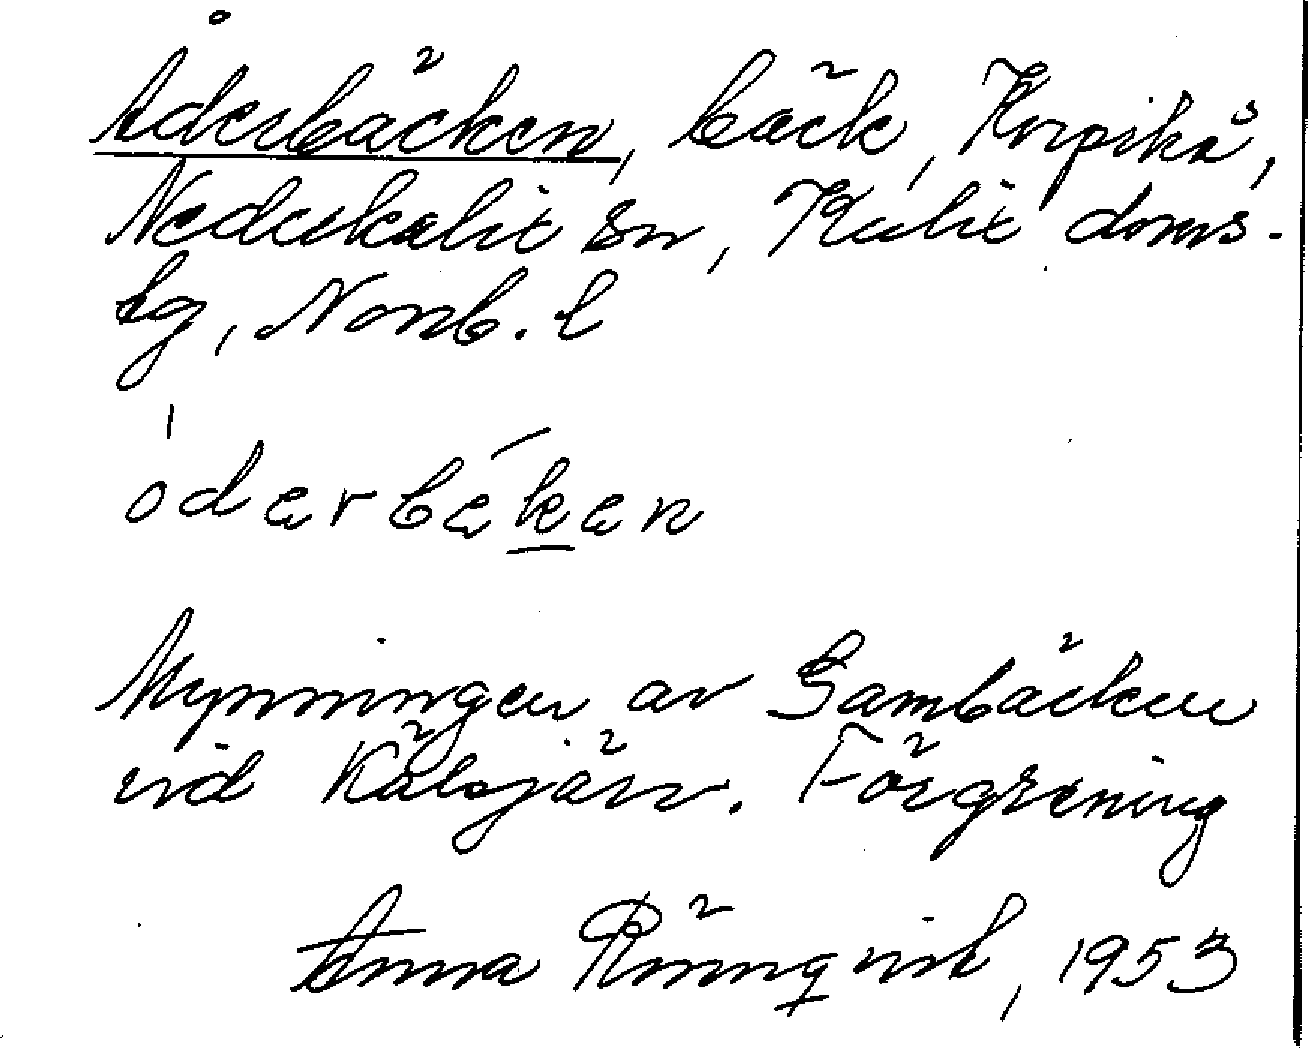 Åderbäcken, bäck, Korpikå,
Nederkalix sn, Kalix doms-
lg, Norrb. l
óderbéken
Mynningen av Sambäcken
vid Kälsjärv. Förgrening
Anna Rönnqvist, 1953